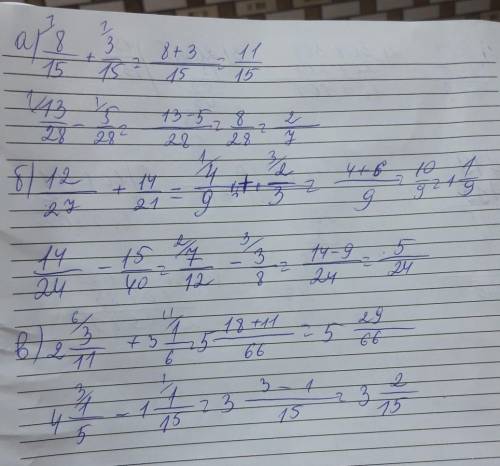 а) 8/15 + 3/15 = 8+3/15 = 11/15
13/28 - 5/28 = 13-5/28 = 8/28 = 2/7
б) 12/27 + 14/21 = 4/9 + 2/3 = 4+6/9 = 10/9 = 1 1/9
14/24 - 15/40 = 7/12 - 3/8 = 14-9/24 = 5/24
в) 2 3/11 + 3 1/6 = 5 18+11/66 = 5 29/66
4 1/5 - 1 1/15 = 3 3-1/15 = 3 2/15